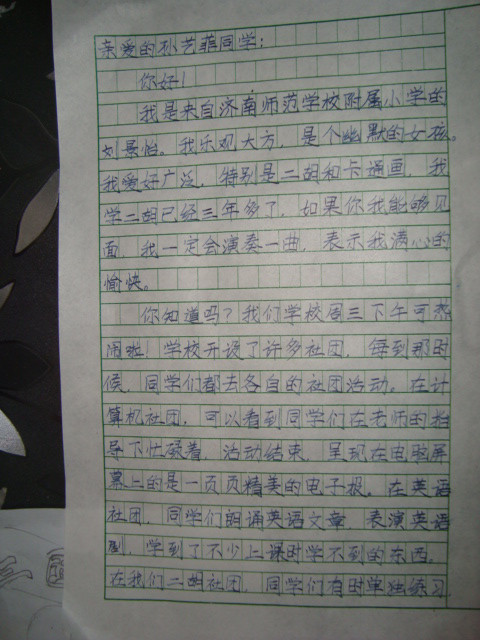 亲爱的孙艺菲同学：
你好！
我是来自济南师范学校附属小学的
刘景怡。我乐观大方，是个幽默的女孩。
我爱好广泛，特别是二胡和卡通画，我
学二胡已经三年多了，如果你我能够见
面，我一定会演奏一曲，表示我满心的
愉快。
你知道吗？我们学校周三下午可热
闹啦！学校开设了许多社团，每到那时
候，同学们都去各自的社团活动。在计
算机社团，可以看到同学们在老师的指
导下忙碌着，活动结束，呈现在电脑屏
幕上的是一页页精美的电子报。在英语
社团，同学们朗诵英语文章，表演英语
剧，学到了不少上课时学不到的东西。
在我们二胡社团，同学们有时单独练习